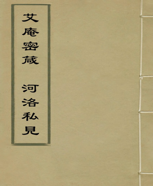 艾庵密箴　河洛私見